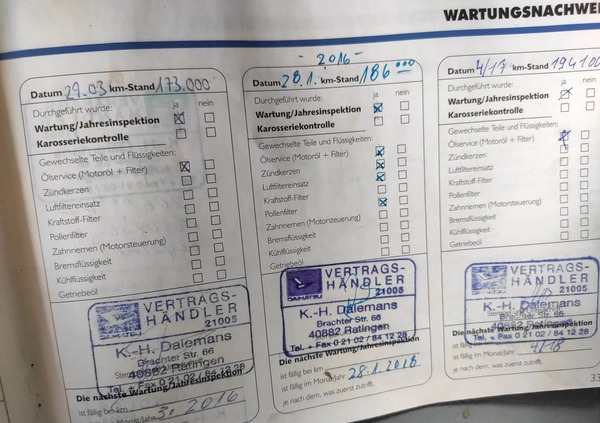 WARTUNGSNACHWEI
Datum 29.03 km-Stand 173.000
Durchgeführt wurde: ja nein
Wartung/Jahresinspektion
Karosseriekontrolle
Gewechselte Teile und Flüssigkeiten:
Ölservice (Motoröl + Filter)
Zündkerzen
Luftfiltereinsatz
Kraftstoff-Filter
Pollenfilter
Zahnriemen (Motorsteuerung)
Bremsflüssigkeit
Kühlflüssigkeit
Getriebeöl
VERTRAGS-
HÄNDLER
21005
DAIHATSU
K.-H. Dalemans
Brachter Str. 66
40882 Ratingen
Tel. + Fax 0 21 02 / 84 12 28
Die nächste Wartung/Jahresinspektion
ist fällig bei km
Monat/Jahr 3. 2016
- 2016 -
Datum 28.1. km-Stand 186 000
Durchgeführt wurde: ja nein
Wartung/Jahresinspektion
Karosseriekontrolle
Gewechselte Teile und Flüssigkeiten:
Ölservice (Motoröl + Filter)
Zündkerzen
Luftfiltereinsatz
Kraftstoff-Filter
Pollenfilter
Zahnriemen (Motorsteuerung)
Bremsflüssigkeit
Kühlflüssigkeit
Getriebeöl
VERTRAGS-
HÄNDLER
DAIHATSU
21005
K.-H. Dalemans
Brachter Str. 66
40882 Ratingen
Tel. + Fax 0 21 02 / 84 12 28
Die nächste Wartung/Jahresinspektion
ist fällig bei km
ist fällig im Monat/Jahr 28.1.2018
je nach dem, was zuerst zutrifft.
Datum 4/17 km-Stand 194100
Durchgeführt wurde: ja nein
Wartung/Jahresinspektion
Karosseriekontrolle
Gewechselte Teile und Flüssigkeiten:
Ölservice (Motoröl + Filter)
Zündkerzen
Luftfiltereinsatz
Kraftstoff-Filter
Pollenfilter
Zahnriemen (Motorsteuerung)
Bremsflüssigkeit
Kühlflüssigkeit
Getriebeöl
VERTRAGS-
HÄNDLER
21005
K.-H. Dalemans
Brachter Str. 66
40882 Ratingen
Tel. + Fax 0 21 02 / 84 12 28
Die nächste Wartung/Jahresinspektion
ist fällig bei km
ist fällig im Monat/Jahr 4/18
je nach dem, was zuerst zutrifft.
33